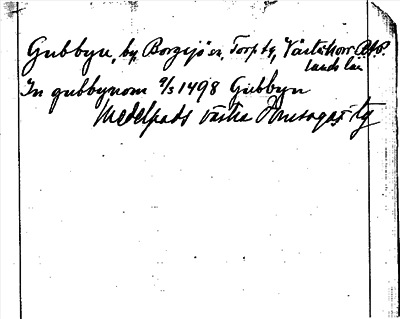 Gubbyn, by, Borgsjö sn, Torp tg, Västernorr-
lands län
In gubbynom 9/3 1498 Gubbyn
Medelpads västra domsaga tg